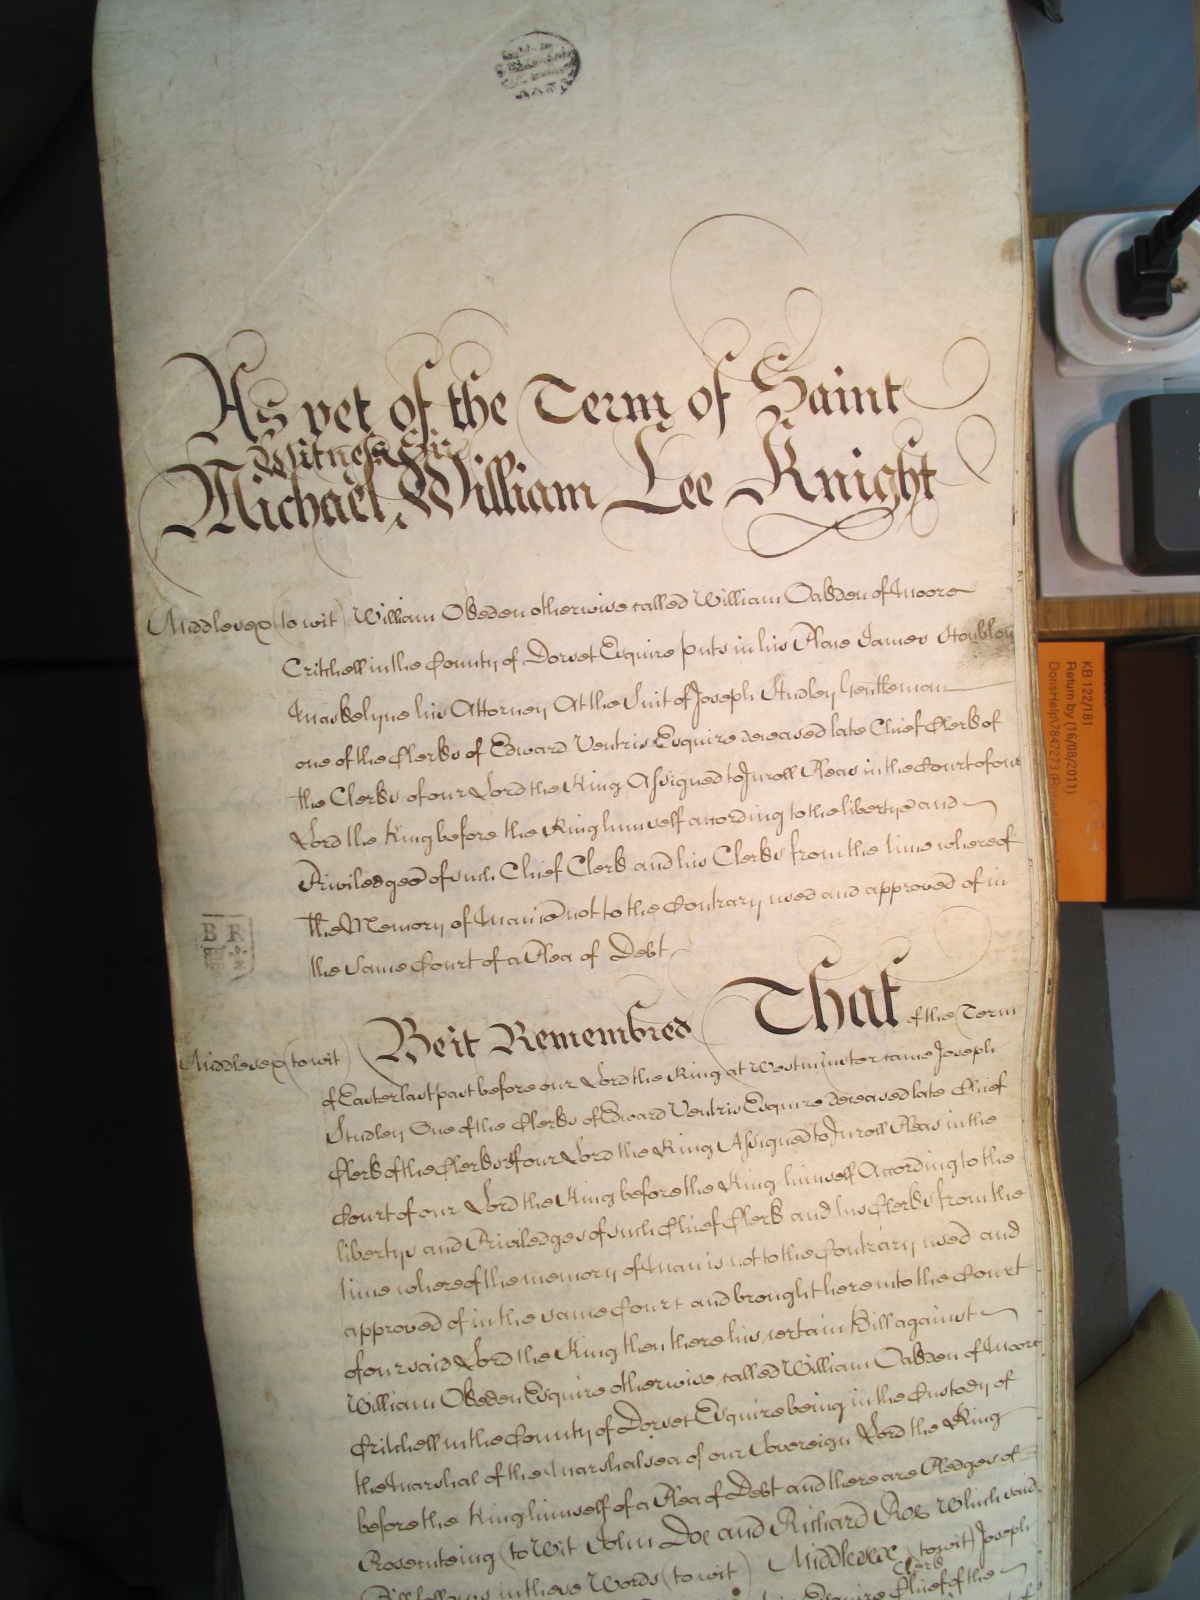 As yet of the Term of Saint
Witness Sir
Michael William Lee Knight
Middlesex (to wit) William Obeden otherwise called William Oabden of Moore
Critchell in the County of Dorset Esquire puts in his Place James
Maskelyne his Attorney At the Suit of Joseph Studley Gentleman
one of the Clerks of Edward Ventris Esquire deceased late Chief Clerk of
the Clerks of our Lord the King Assigned to Inroll Pleas in the Court of our
Lord the King before the King himself according to the libertys and
Priviledges of such Chief Clerk and his Clerks from the time whereof
the Memory of Man is not to the Contrary used and approved of in
the same Court of a Plea of Debt
Middlesex (to wit) Be it Remembred That of the Term
of Easter last past before our Lord the King at Westminster came Joseph
Studley One of the Clerks of Edward Ventris Esquire deceased late Chief
Clerk of the Clerks of our Lord the King Assigned to Inroll Pleas in the
Court of our Lord the King before the King himself According to the
libertys and Priviledges of such Chief Clerk and his Clerks from the
time whereof the memory of Man is not to the Contrary used and
approved of in the same Court and brought here into the Court
of our said Lord the King then there his certain Bill against
William Obeden Esquire otherwise called William Oabden of Moore
Critchell in the County of Dorset Esquire being in the Custody of
the Marshal of the Marshalsea of our Sovereign Lord the King
before the King himself of a Plea of Debt and there are Pledges of
Prosecuteing (to Wit John Doe and Richard Roe Which said
Bill follows in these Words (to wit) Middlesex (to wit) Joseph
Clerk
Esquire Chief of the
B R
KB 122/181
Return by (16/08/2011)